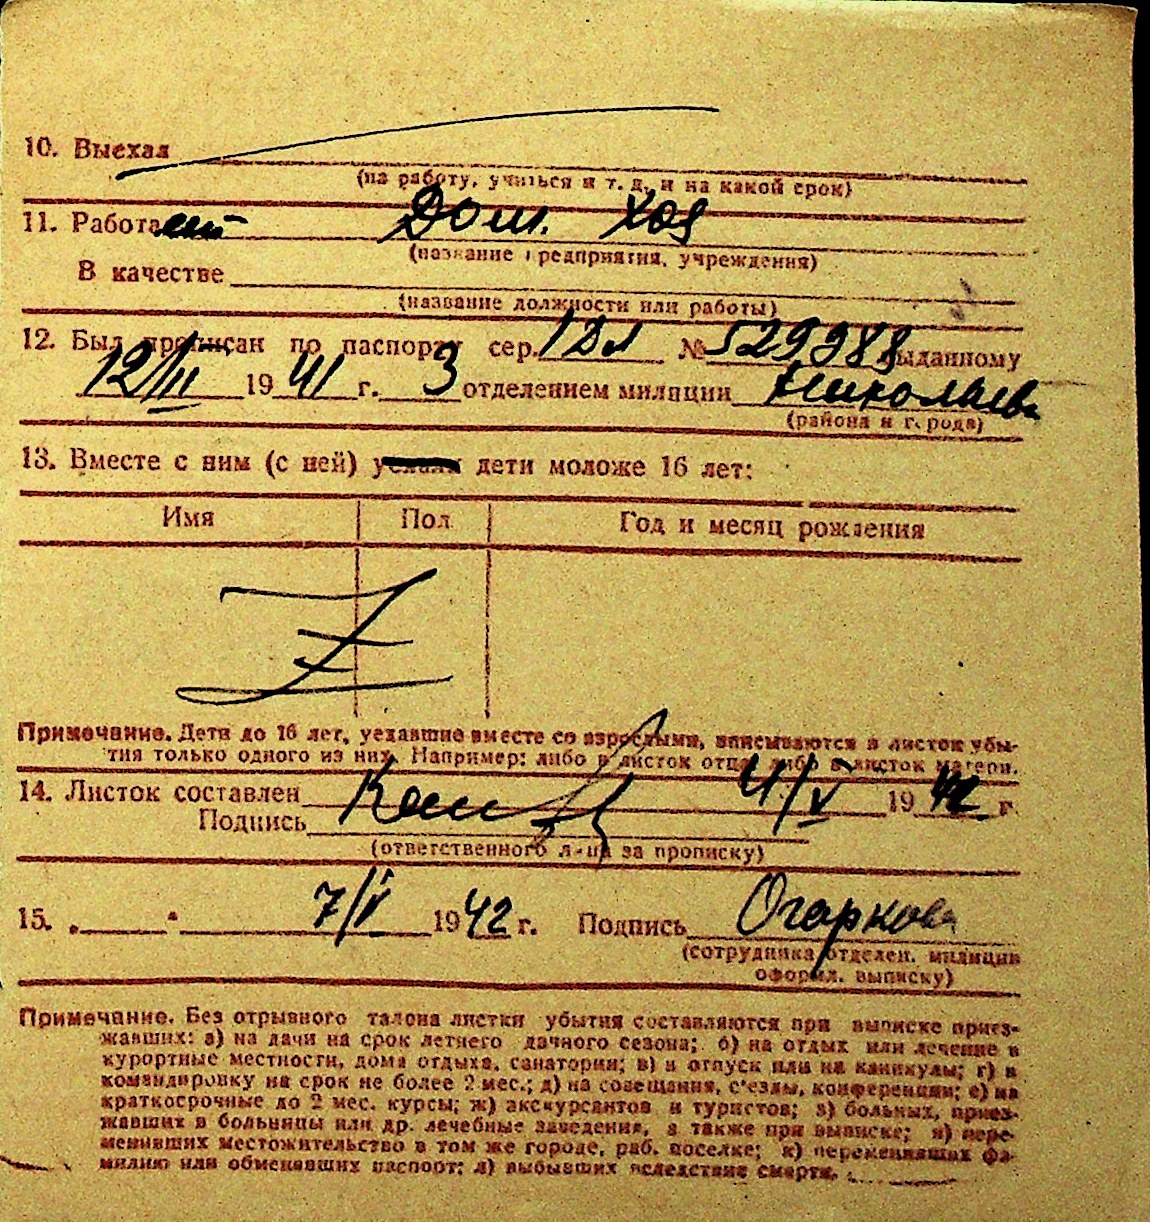 10. Выехал
(на работу, учиться и т. д. и на какой срок)
11. Работает Дом. Хоз
(название предприятия, учреждения)
В качестве
(название должности или работы)
12. Был прописан по паспорту сер. № 529988 выданному
12/II 1941 г. 3 отделением милиции
(района и города)
13. Вместе с ним (с ней) уехали дети моложе 16 лет:
Имя Пол Год и месяц рождения
Z
Примечание. Дети до 16 лет, уехавшие вместе со взрослыми, вписываются в листок убы-
тия только одного из них. Например: либо в листок отца, либо в листок матери.
14. Листок составлен 4/V 1942 г.
Подпись
(ответственного лица за прописку)
15. „ “ 7/V 1942 г. Подпись Огаркова
(сотрудника отделен. милиции
оформл. выписку)
Примечание. Без отрывного талона листки убытия составляются при выписке приез-
жавших: а) на дачи на срок летнего дачного сезона; б) на отдых или лечение в
курортные местности, дома отдыха, санатории; в) в отпуск или на каникулы; г) в
командировку на срок не более 2 мес.; д) на совещания, съезды, конференции; е) на
краткосрочные до 2 мес. курсы; ж) экскурсантов и туристов; з) больных, приез-
жавших в больницы или др. лечебные заведения, а также при выписке; и) пере-
менивших местожительство в том же городе, раб. поселке; к) переменивших фа-
милию или обменявших паспорт; л) выбывших вследствие смерти.